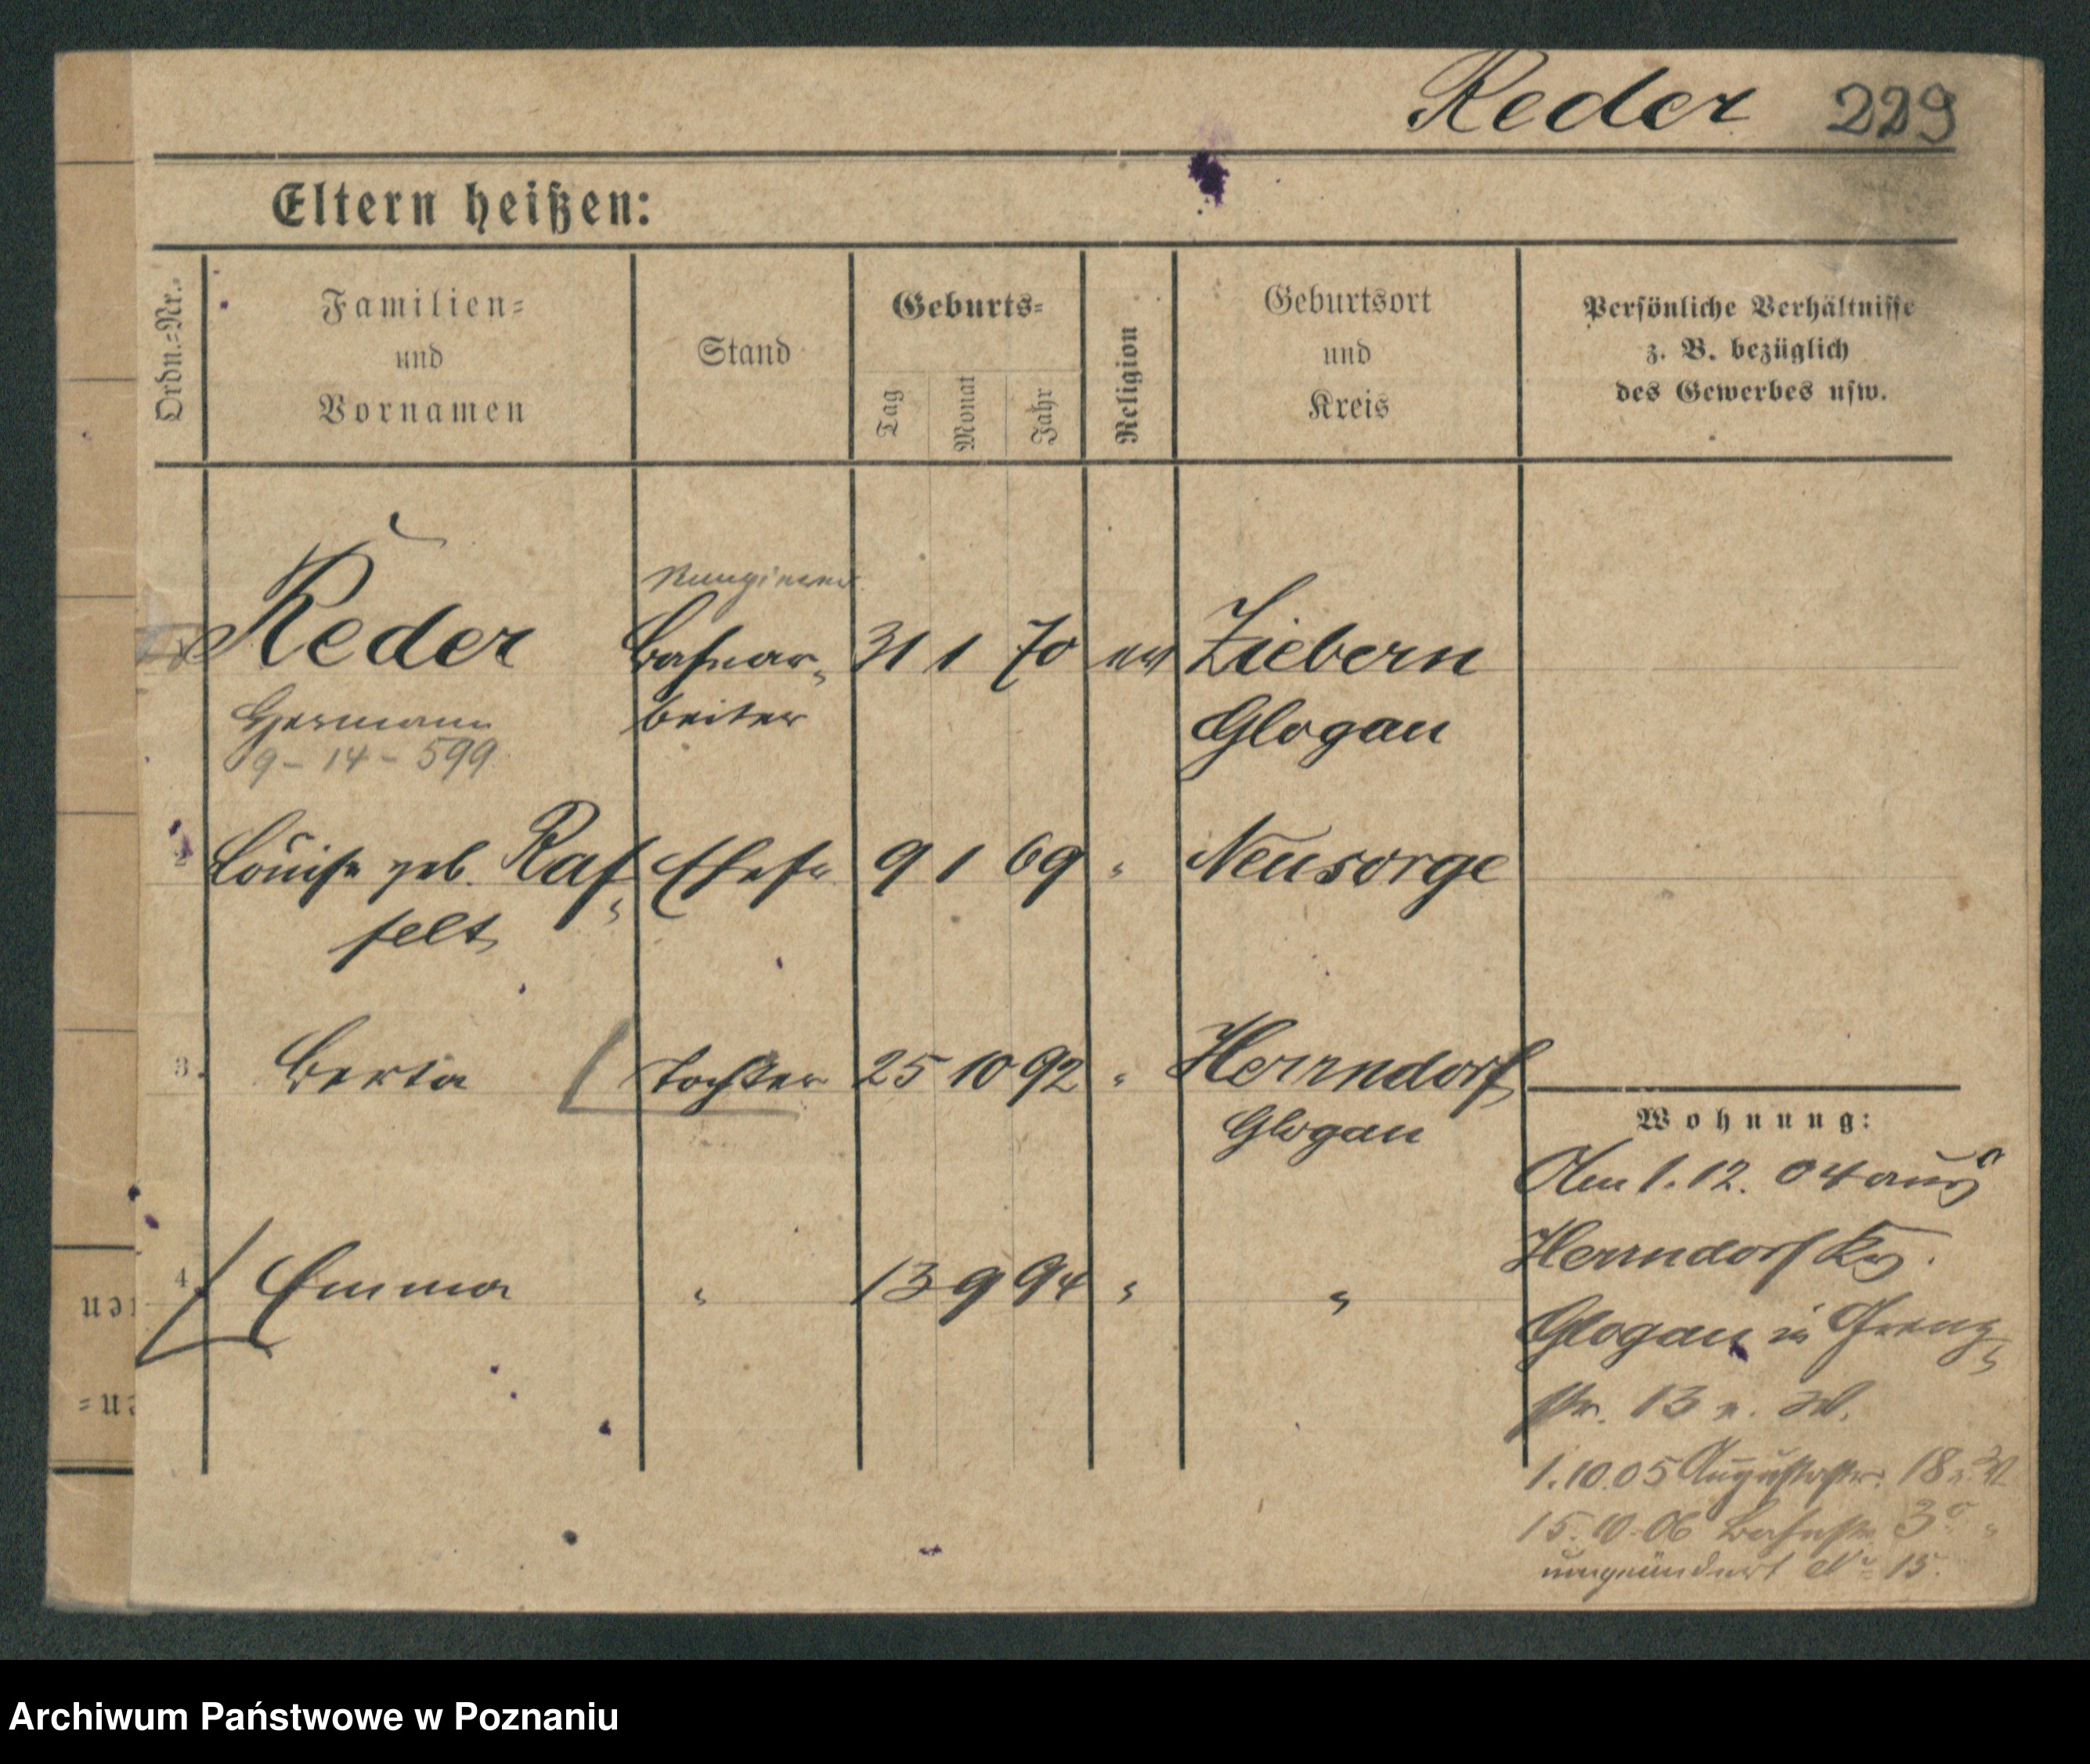 Reder 229
Eltern heißen:
Ordn.-Nr.
Familien-
und
Vornamen
Stand
Geburts-
Tag
Monat
Jahr
Religion
Geburtsort
und
Kreis
Persönliche Verhältnisse
z. B. bezüglich
des Gewerbes usw.
Rangierer
Reder Bahnar- 31 1 70 ev Ziebern
Hermann beiter Glogau
9-14-599
2 Louise geb. Raf- Ehefr 9 1 69 " Neusorge
felt
3. Berta Tochter 25 10 92 " Herrndorf
Glogau
4 Emma " 13 9 94 " "
Wohnung:
Am 1.12.04 aus
Herrndorf Kr.
Glogau in
Str. 13 b.
1.10.05 Augustastr. 18 b.
15.10.06 Bahnstr 3 "
umgeändert No 15.
ren
en=
Archiwum Państwowe w Poznaniu